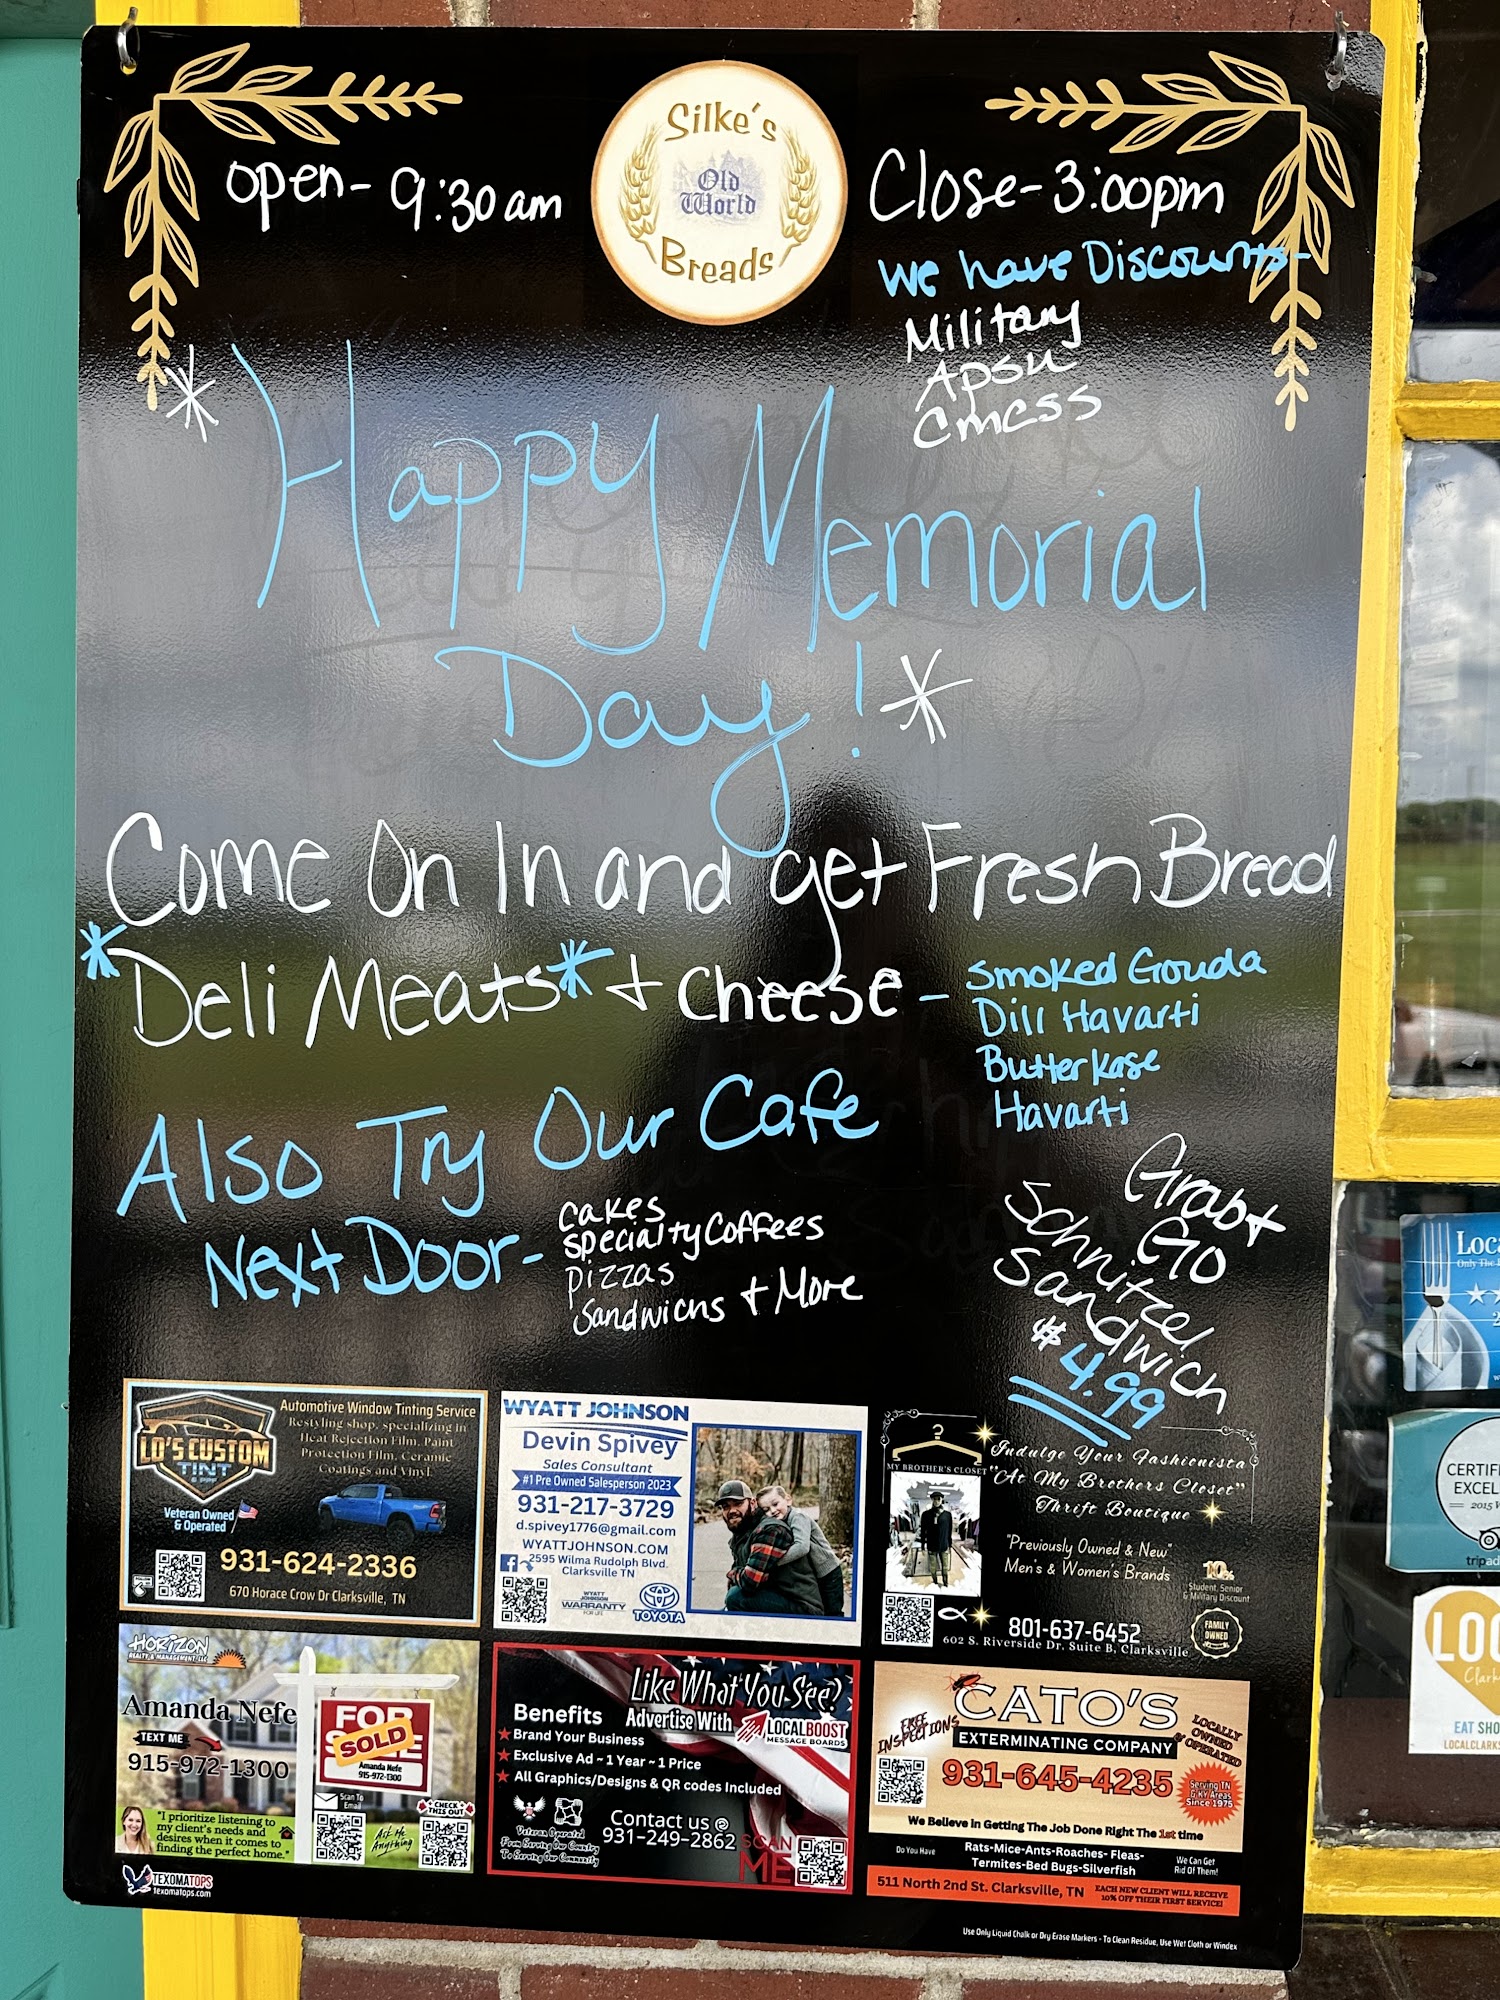 Silke's
Old
World
Breads
open- 9:30 am
Close-3:00pm
We have Discounts-
Military
Apsu
Cmcss
*Happy Memorial
Day!*
Come On In and get Fresh Bread
*Deli Meats* + Cheese -
Smoked Gouda
Dill Havarti
Butterkase
Havarti
Also Try Our Cafe
Next Door-
Cakes
Specialty Coffees
Pizzas
Sandwichs + More
Grab +
Go
Schnitzel
Sandwich
$4.99
LO'S CUSTOM
TINT
Automotive Window Tinting Service
Restyling shop, specializing in
Heat Rejection Film, Paint
Protection Film, Ceramic
Coatings and Vinyl
Veteran Owned
& Operated
931-624-2336
670 Horace Crow Dr Clarksville, TN
WYATT JOHNSON
Devin Spivey
Sales Consultant
#1 Pre Owned Salesperson 2023
931-217-3729
d.spivey1776@gmail.com
WYATTJOHNSON.COM
2595 Wilma Rudolph Blvd.
Clarksville TN
WYATT
JOHNSON
WARRANTY
FOR LIFE
TOYOTA
MY BROTHER'S CLOSET
Indulge Your Fashionista
"At My Brothers Closet"
Thrift Boutique
"Previously Owned & New"
Men's & Women's Brands
10%
Student, Senior
& Military Discount
801-637-6452
602 S. Riverside Dr. Suite B, Clarksville
FAMILY
OWNED
HORIZON
REALTY & MANAGEMENT, LLC
Amanda Nefe
TEXT ME
915-972-1300
FOR
SALE
SOLD
Amanda Nefe
915-972-1300
Scan To
Email
CHECK
THIS OUT
Ask Me
Anything
"I prioritize listening to
my client's needs and
desires when it comes to
finding the perfect home."
Like What You See?
Advertise With
LOCALBOOST
MESSAGE BOARDS
Benefits
Brand Your Business
Exclusive Ad ~ 1 Year ~ 1 Price
All Graphics/Designs & QR codes Included
Veteran Operated
From Serving Our Country
To Serving Our Community
Contact us @
931-249-2862
SCAN
ME
CATO'S
EXTERMINATING COMPANY
FREE
INSPECTIONS
LOCALLY
OWNED
& OPERATED
931-645-4235
Serving TN
& KY Areas
Since 1975
We Believe in Getting The Job Done Right The 1st time
Do You Have
Rats-Mice-Ants-Roaches- Fleas-
Termites-Bed Bugs-Silverfish
We Can Get
Rid Of Them!
511 North 2nd St. Clarksville, TN
EACH NEW CLIENT WILL RECEIVE
10% OFF THEIR FIRST SERVICE!
TEXOMATOPS
Texomatops.com
Use Only Liquid Chalk or Dry Erase Markers - To Clean Residue, Use Wet Cloth or Windex
Loca
Only The
CERTIF
EXCEL
2015
tripad
LOC
Clark
EAT SHO
LOCALCLARKS